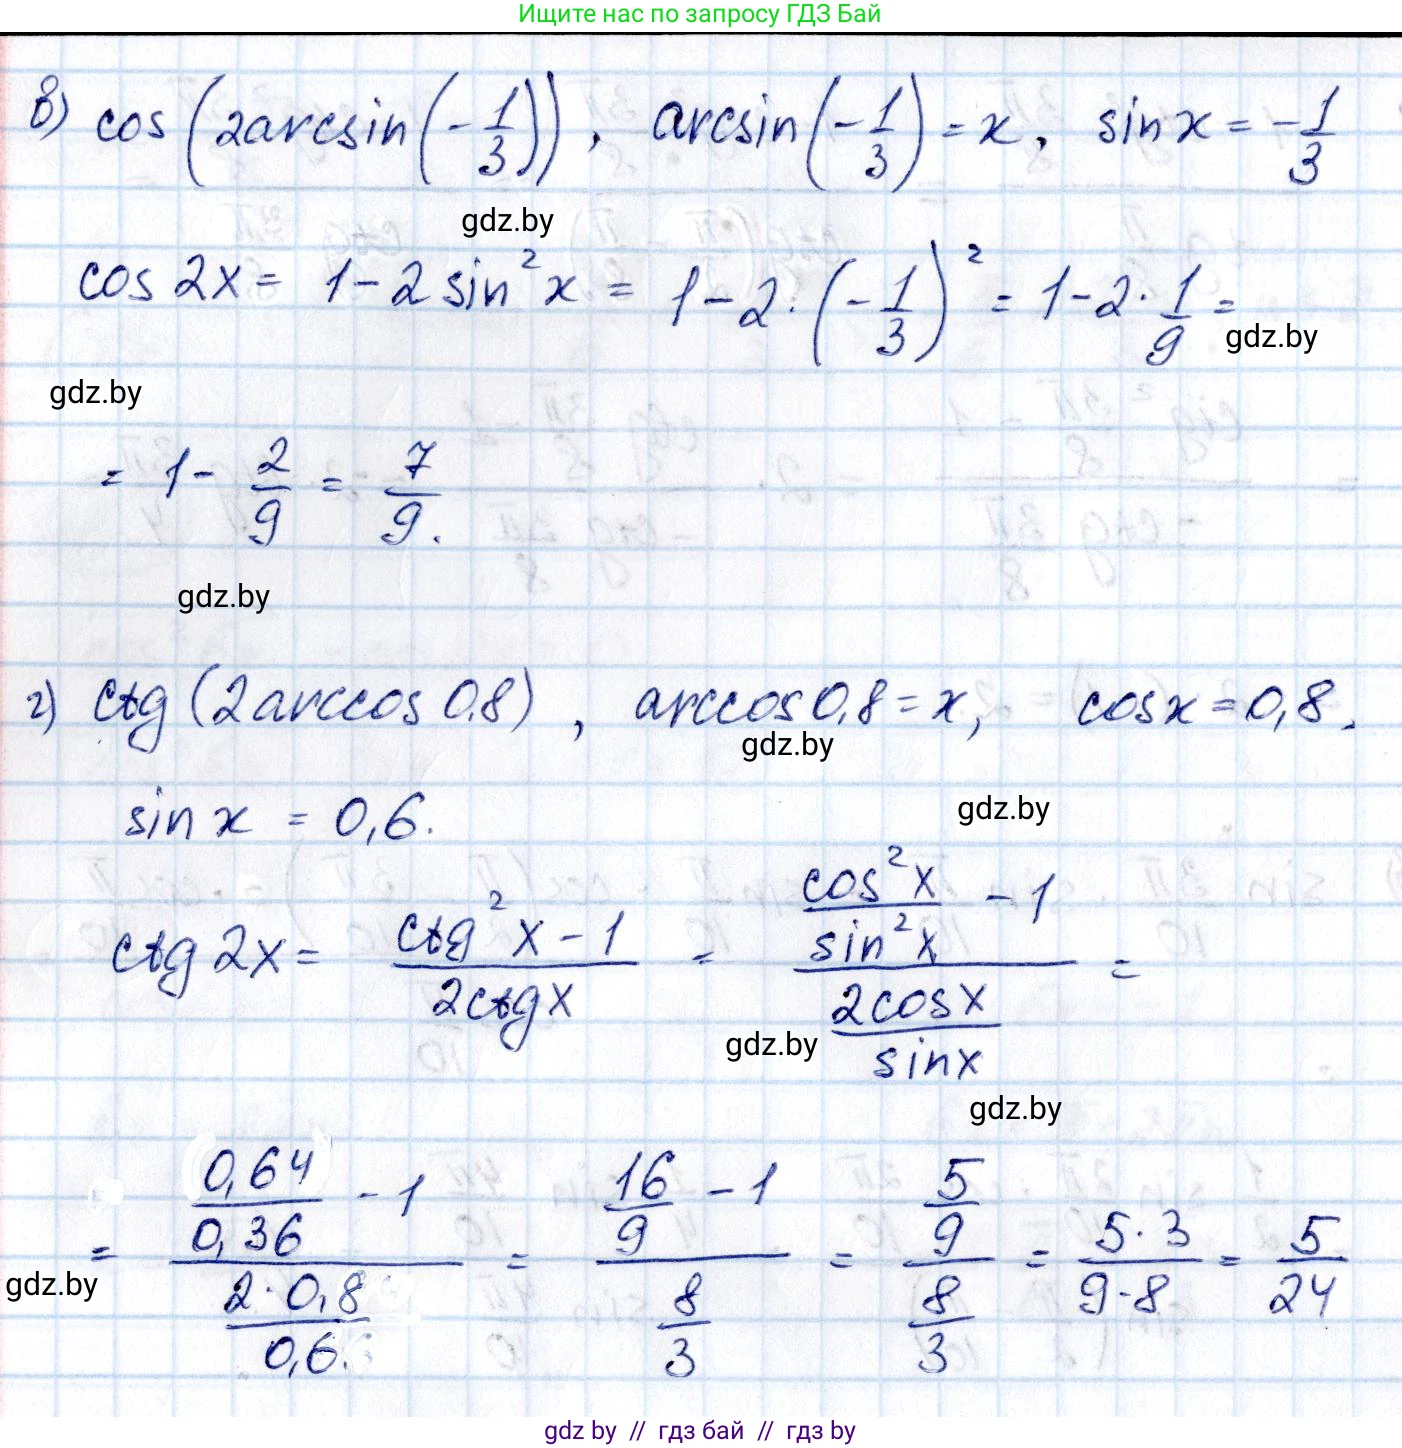 Ищите нас по запросу ГДЗ Бай
в) cos (2arcsin(-1/3)), arcsin(-1/3) = x, sin x = -1/3
gdz.by
cos 2x = 1 - 2 sin² x = 1 - 2·(-1/3)² = 1 - 2·1/9 =
gdz.by
gdz.by
= 1 - 2/9 = 7/9.
gdz.by
г) ctg (2arccos 0,8), arccos 0,8 = x, cos x = 0,8.
gdz.by
sin x = 0,6.
gdz.by
ctg 2x = (ctg² x - 1)/(2ctg x) = (cos² x/sin² x - 1)/(2cos x/sin x) =
gdz.by
gdz.by
= (0,64/0,36 - 1)/(2·0,8/0,6) = (16/9 - 1)/(8/3) = (5/9)/(8/3) = (5·3)/(9·8) = 5/24
gdz.by
gdz by // гдз бай // гдз by